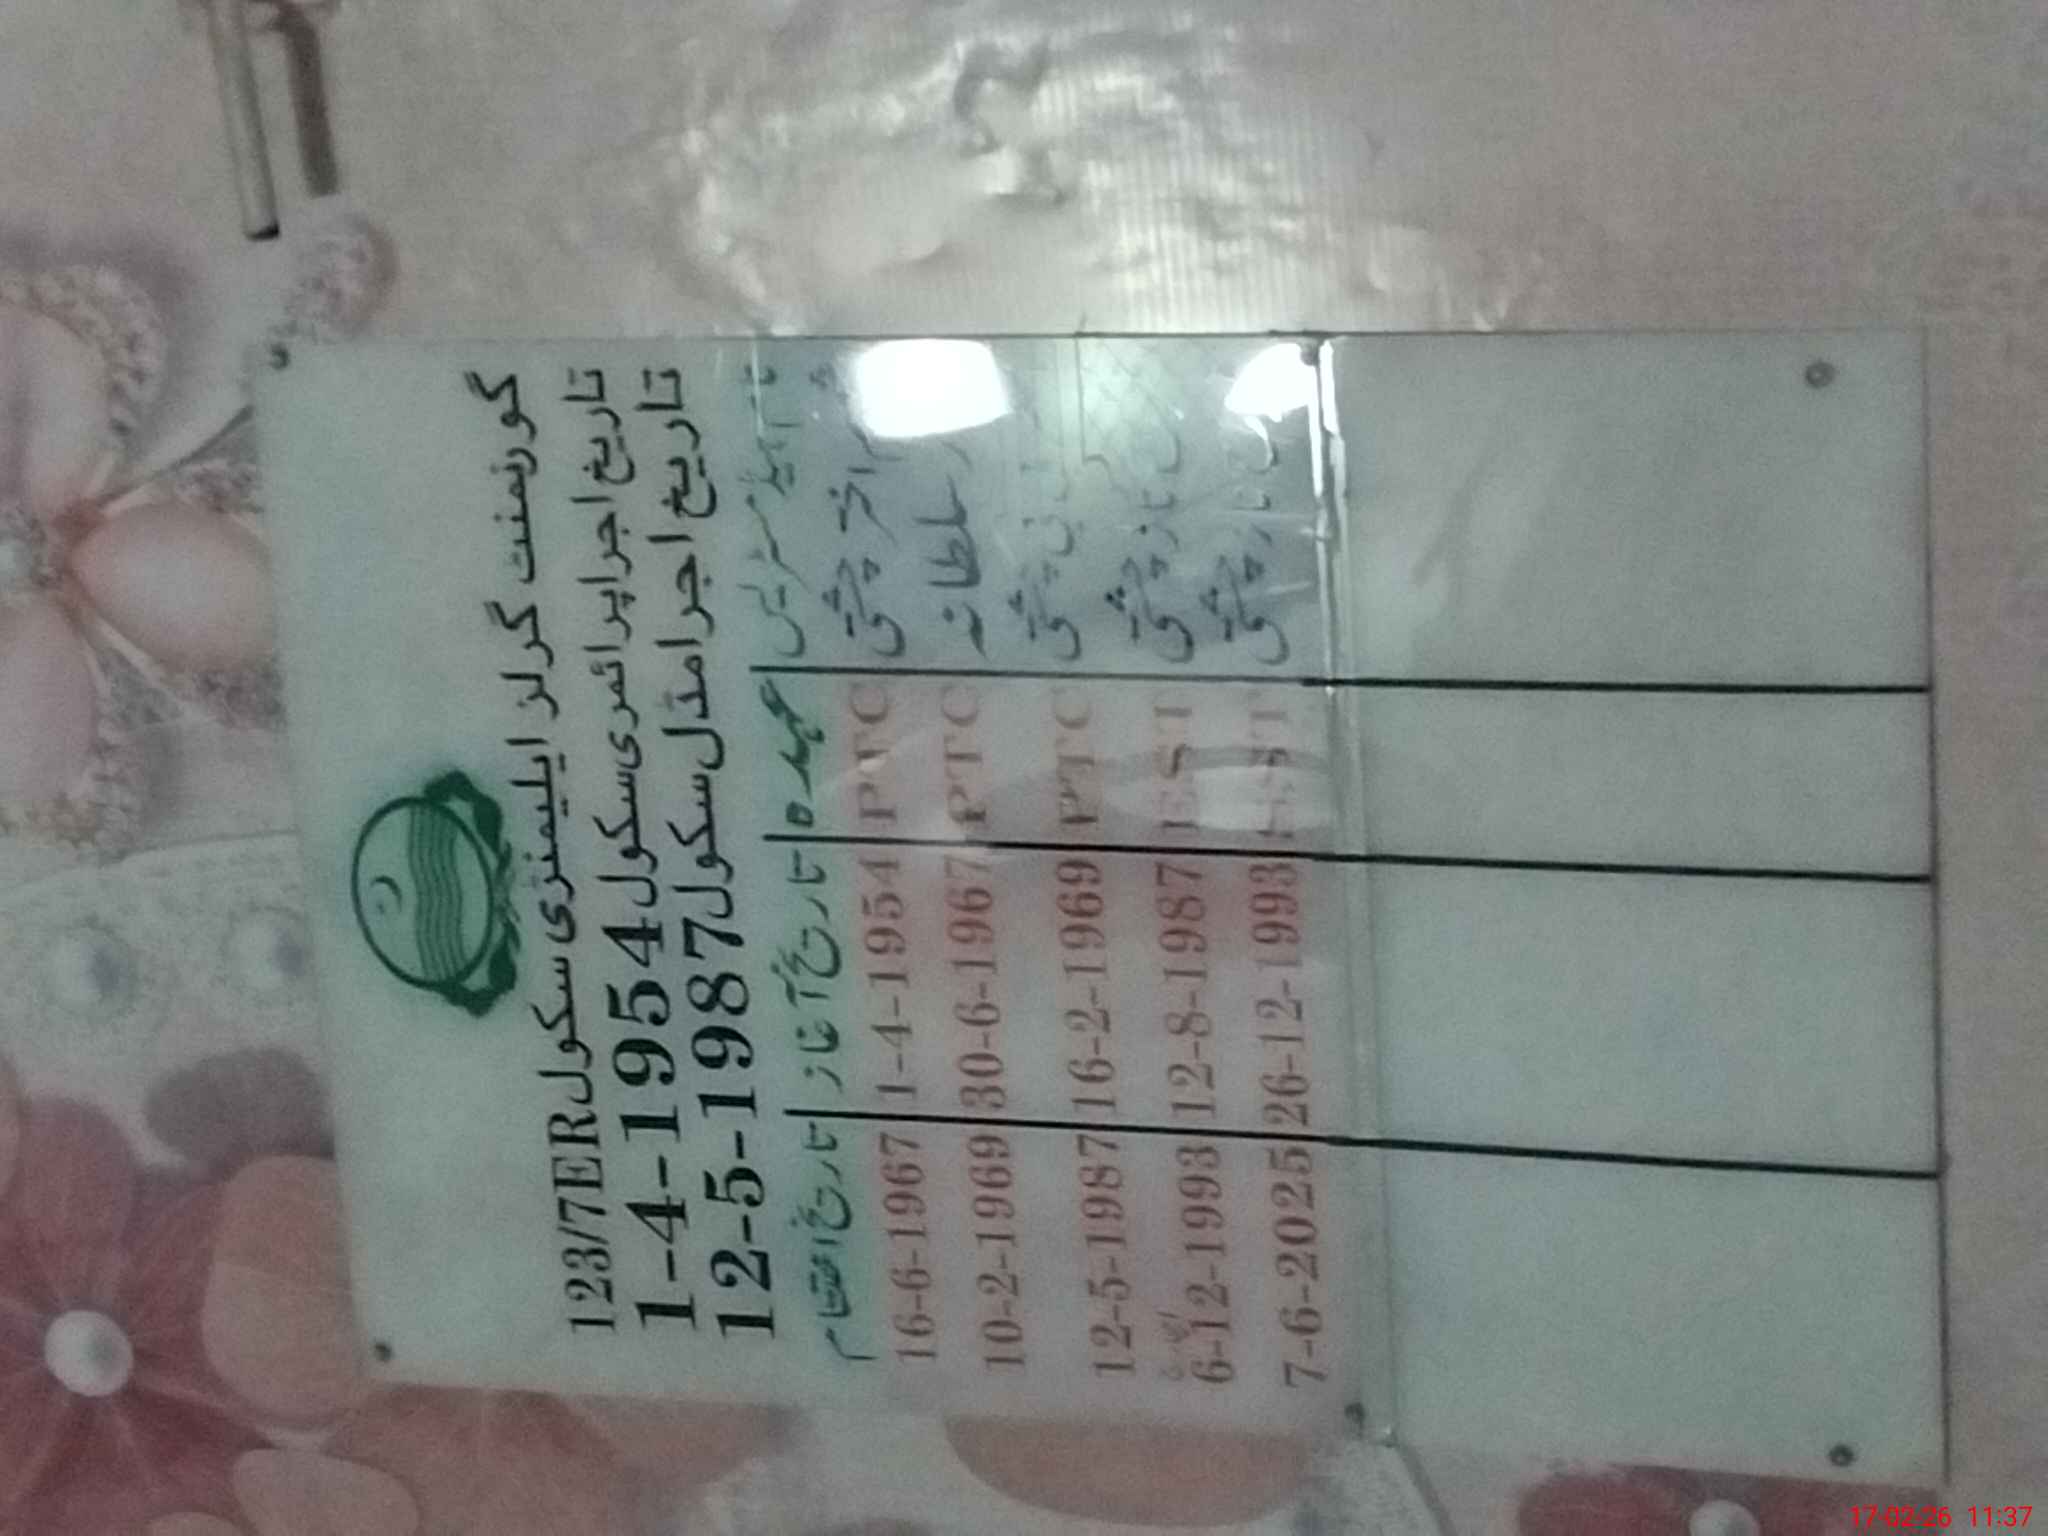 گورنمنٹ گرلز ایلیمنٹری سکول 123/7ER
تاریخ اجرا پرائمری سکول 1-4-1954
تاریخ اجرا مڈل سکول 12-5-1987
نام ہیڈمسٹریس عہدہ تاریخ آغاز تاریخ اختتام
اختر چشتی PTC 1-4-1954 16-6-1967
سلطانہ PTC 30-6-1967 10-2-1969
چشتی PTC 16-2-1969 12-5-1987
ناز چشتی ESE 12-8-1987 6-12-1993
ناز چشتی 26-12-1993 7-6-2025
17-02-26 11:37